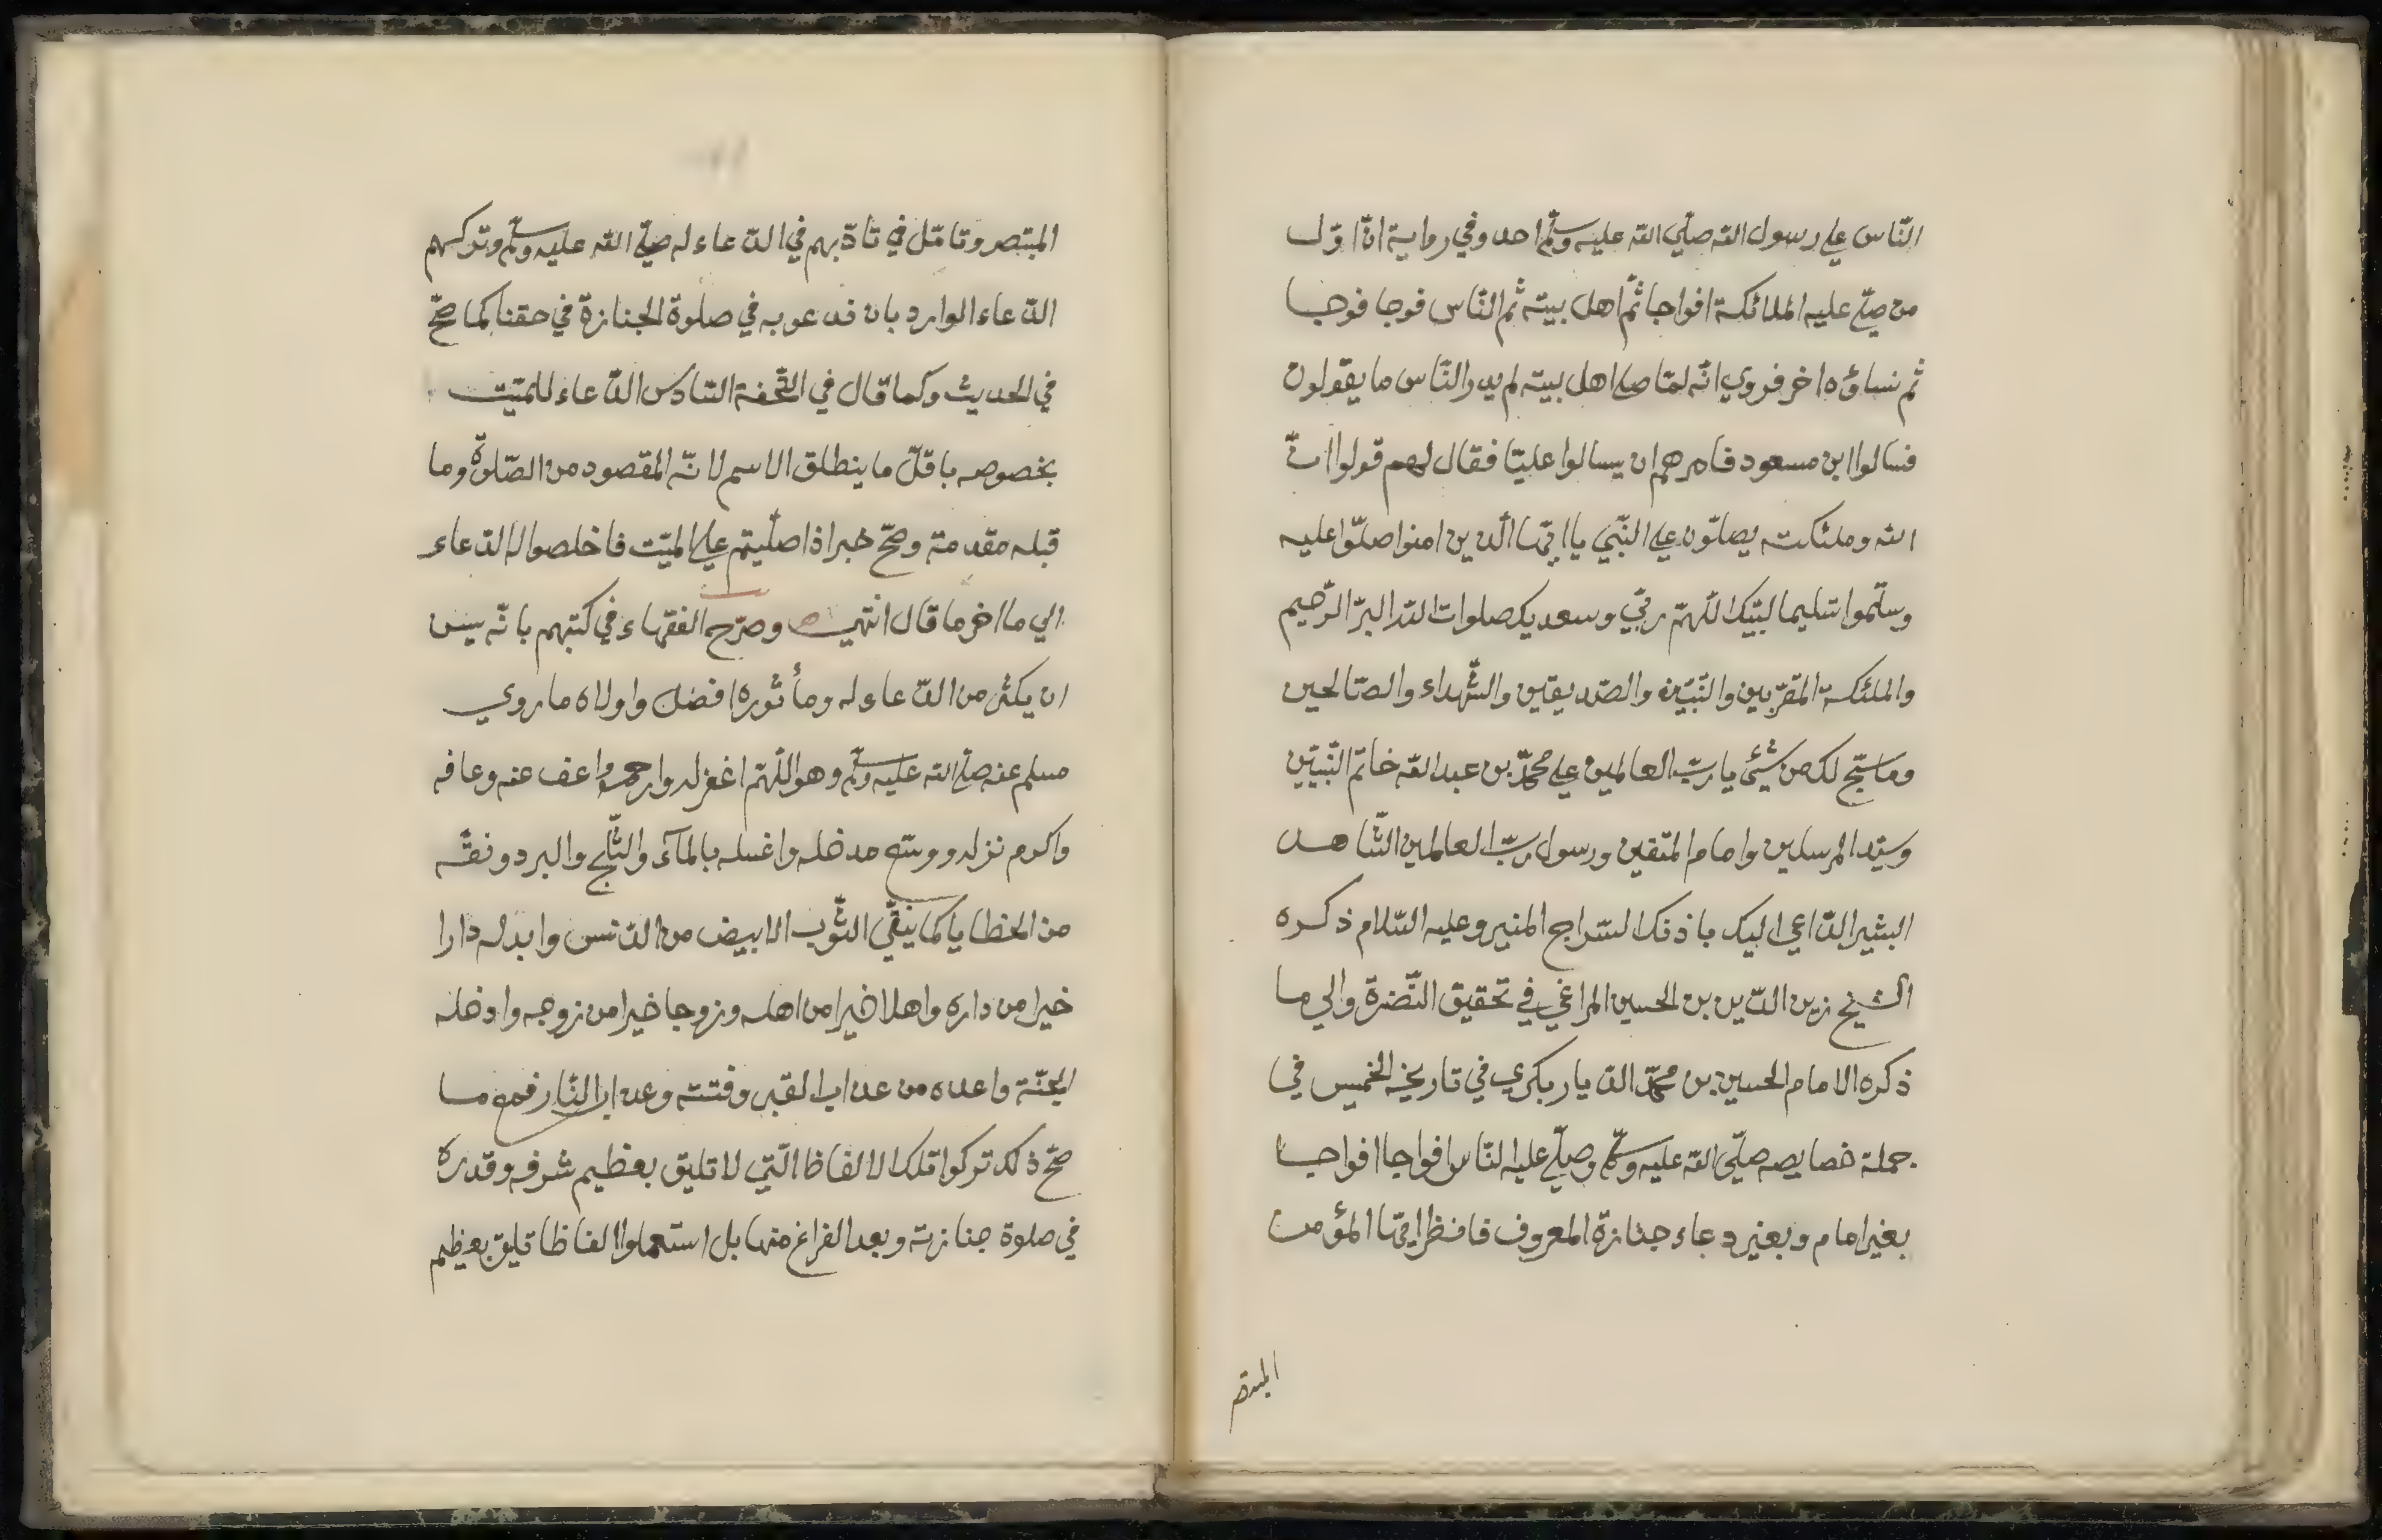 النّاس علي رسول الله صلّي الله عليه وسلّم احد وفي رواية انّ اوّل
من صلّي عليه الملائكة افواجا ثمّ اهل بيته ثم النّاس فوجا فوجا
ثم نساؤه اخر فروي انّه لمّا صلي اهل بيته لم يدر النّاس ما يقولون
فسالوا ابن مسعود فامرهم ان يسالوا عليّا فقال لهم قولوا انّ
الله وملئكته يصلّون علي النّبي يا ايّها الّذين امنوا صلّوا عليه
وسلّموا تسليما لبّيك اللّهمّ ربّي وسعديك صلوات الله البرّ الرّحيم
والملئكة المقرّبين والنّبيّين والصّديقين والشّهداء والصّالحين
وما سبّح لك من شيئ يا ربّ العالمين علي محمّد بن عبد الله خاتم النّبيّين
وسيّد المرسلين وامام المتّقين ورسول ربّ العالمين الشّاهد
البشير الدّاعي اليك باذنك السّراج المنير وعليه السّلام ذكره
الشيخ زين الدّين بن الحسين المراغي في تحقيق النّضرة والي ما
ذكره الامام الحسين بن محمّد الديار بكري في تاريخه الخميس في
جملة خصايصه صلّي الله عليه وسلّم وصلّي عليه النّاس افواجا افواجا
بغير امام وبغير دعاء جنازة المعروف فانظر ايّها المؤمن
المبتصر
المبتصر وتامّل في تادّبهم في الدّعاء له صلّي الله عليه وسلّم وتركهم
الدّعاء الوارد بان ندعو به في صلوة الجنازة في حقنا كما صحّ
في الحديث وكما قال في التّحفة السّادس الدّعاء للميّت
بخصوصه باقلّ ما ينطلق الاسم لانّه المقصود من الصّلوة وما
قبله مقدمة وصحّ خبر اذا صلّيتم علي الميّت فاخلصوا له الدّعاء
الي ما اخر ما قال انتهي وصرّح الفقهاء في كتبهم بانّه يسن
ان يكثر من الدّعاء له ومأثوره افضل واولاه ما روي
مسلم عنه صلي الله عليه وسلّم وهو اللّهمّ اغفر له وارحمه واعف عنه وعافه
واكرم نزله ووسّع مدخله واغسله بالمآء والثّلج والبرد ونقّه
من الخطايا كما ينقّي الثّوب الابيض من الدّنس وابدله دارا
خيرا من داره واهلا خيرا من اهله وزوجا خيرا من زوجه وادخله
الجنّة واعده من عذاب القبر وفتنته وعذاب النّار فمع ما
صحّ ذلك تركوا تلك الالفاظ الّتي لا تليق بعظيم شرفه وقدره
في صلوة جنازته وبعد الفراغ منها بل استعملوا الفاظا تليق بعظيم